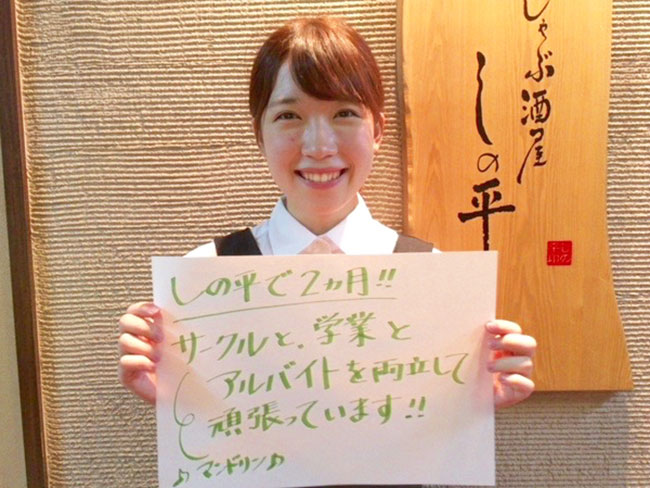 しゃぶ酒屋
しの平
しの平で2ヵ月!!
サークルと、学業と
アルバイトを両立して
頑張っています!!
♪マンドリン♪